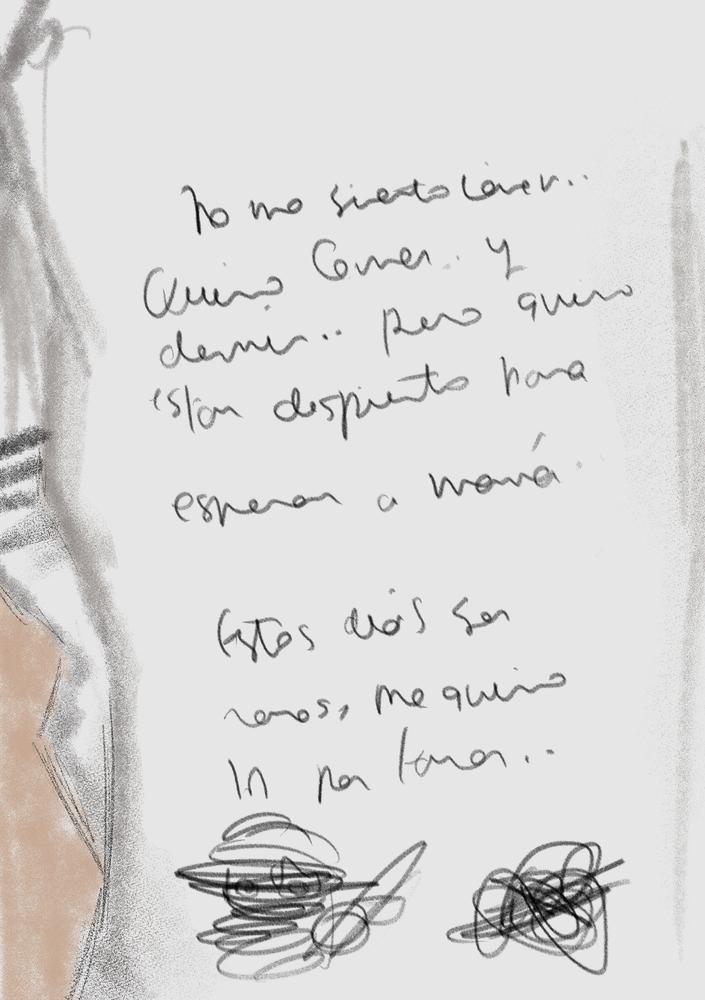 No me siento
Quiero Comer.. y
dormir.. pero quiero
estar despierto para
esperar a mamá.
Estos días son
raros, me quiero
ir por